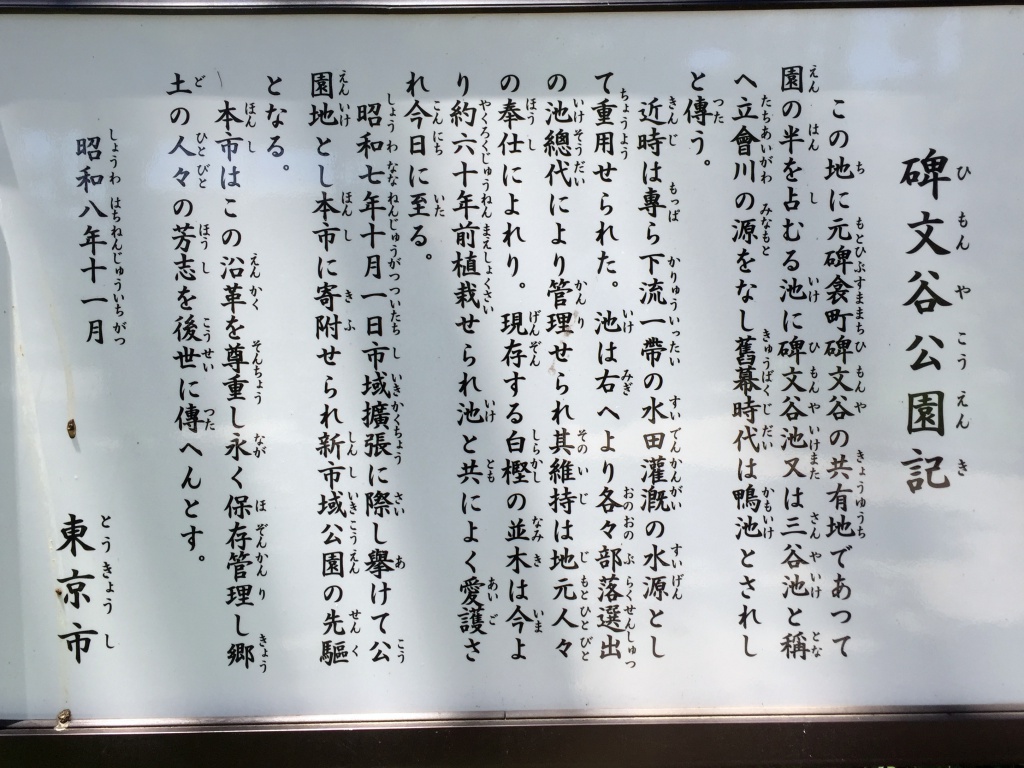 碑文谷公園記
この地に元碑衾町碑文谷の共有地であつて
園の半を占むる池に碑文谷池又は三谷池と稱
へ立會川の源をなし舊幕時代は鴨池とされし
と傳う。
近時は專ら下流一帶の水田灌漑の水源とし
て重用せられた。池は右へより各々部落選出
の池總代により管理せられ其維持は地元人々
の奉仕によれり。現存する白樫の並木は今よ
り約六十年前植栽せられ池と共によく愛護さ
れ今日に至る。
昭和七年十月一日市域擴張に際し擧けて公
園地とし本市に寄附せられ新市域公園の先驅
となる。
本市はこの沿革を尊重し永く保存管理し郷
土の人々の芳志を後世に傳へんとす。
昭和八年十一月
東京市